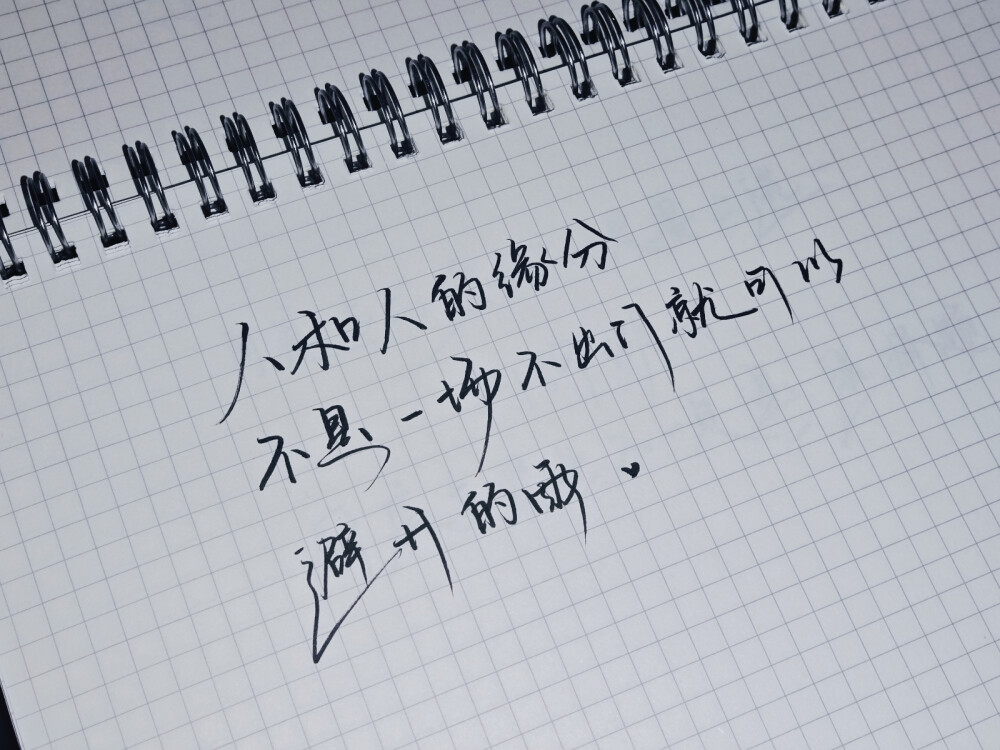 人和人的缘分
不是一场不出门就可以
避开的雨.